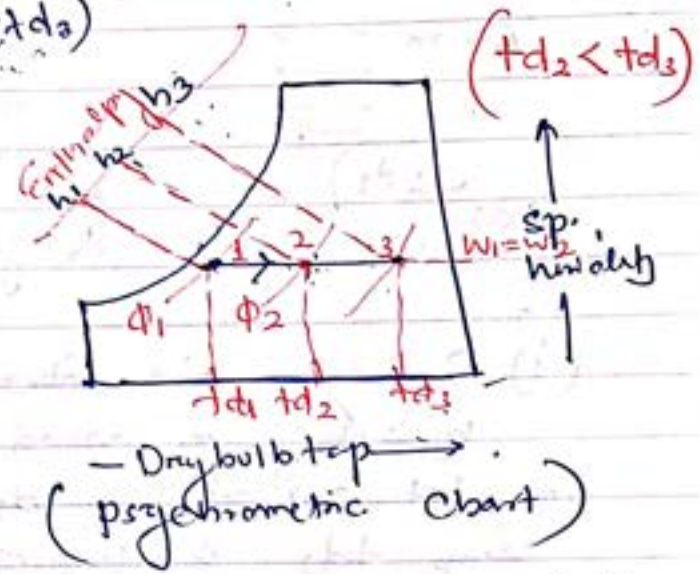 td₃)
(td₂ < td₃)
Enthalpy
h₁
h₂
h₃
1
2
3
W₁=W₂
sp.
humidity
Φ₁
Φ₂
td₁ td₂ td₃
— Dry bulb temp →
(psychrometric chart)